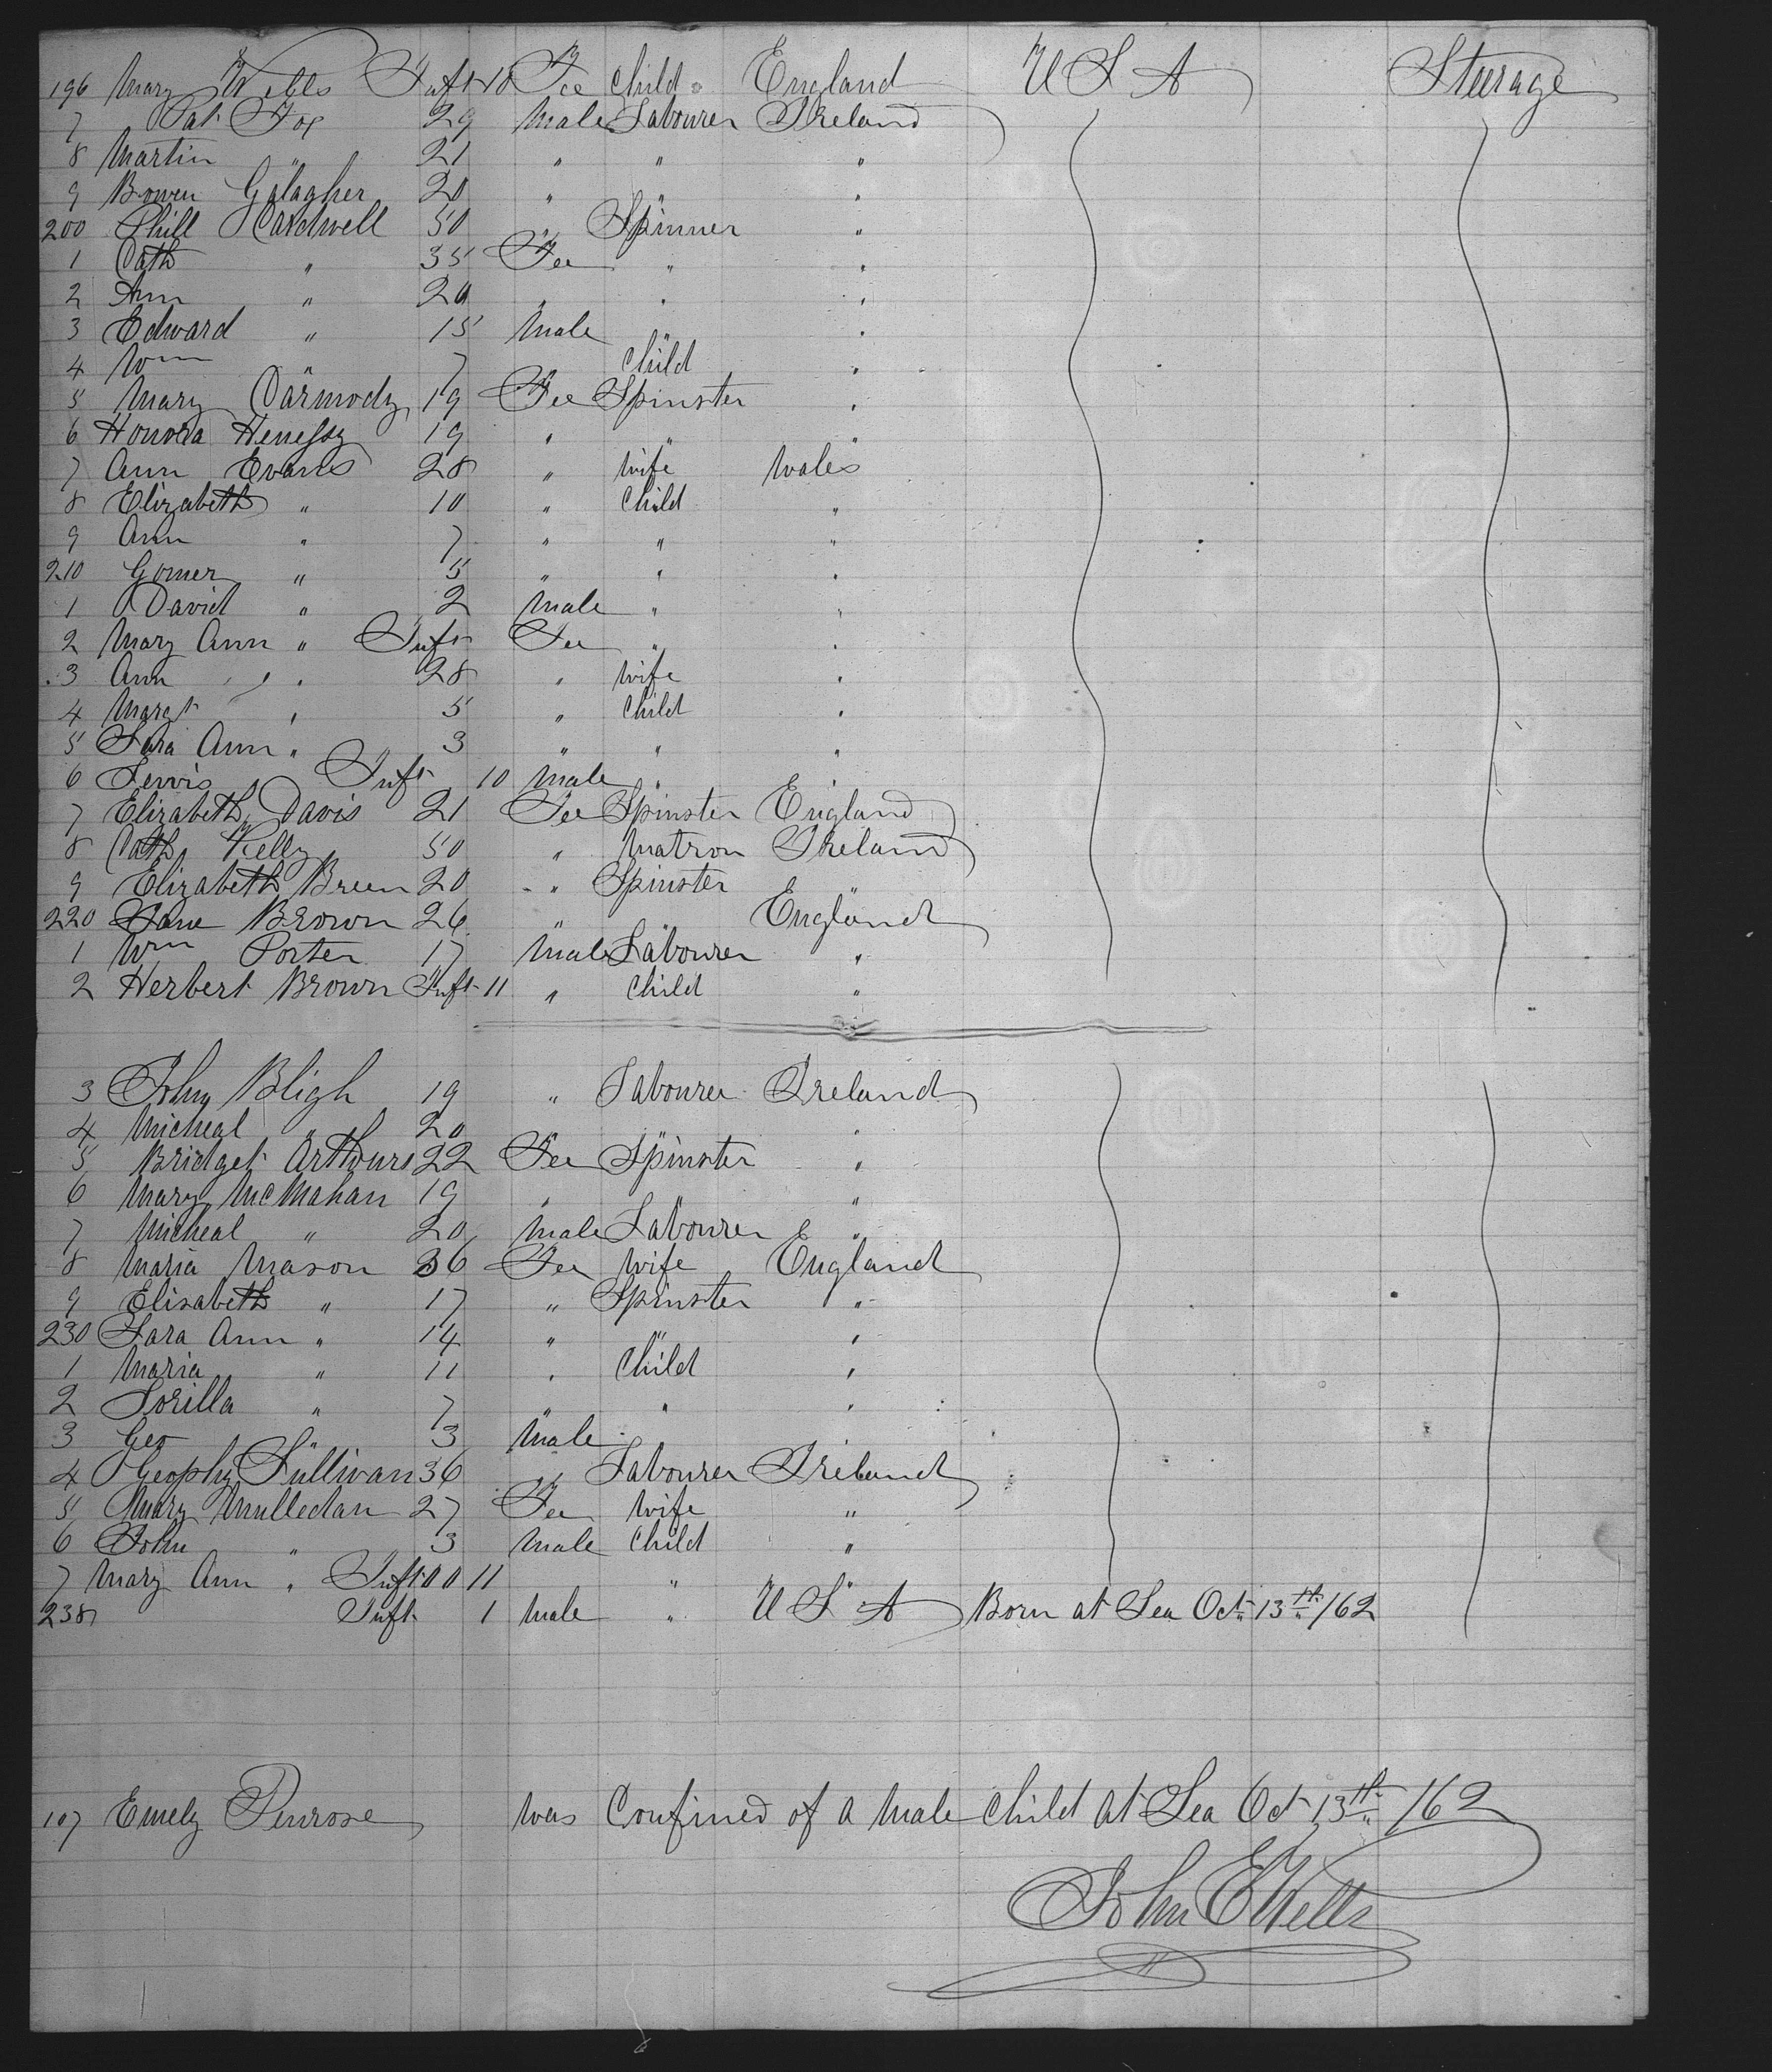 196 Mary Wibbs Inft 10 Fee Child England U S A Steerage
7 Pat Fox 29 Male Labourer Ireland
8 Martin " 21 " " "
9 Bowen Galagher 20 " " "
200 Phill Cardwell 50 " Spinner "
1 Cath " 35 Fee " "
2 Ann " 20 " " "
3 Edward " 15 Male " "
4 Wm " 7 Child "
5 Mary Carmody 19 Fee Spinster "
6 Honora Henessy 19 " " "
7 Ann Evans 28 " Wife Wales
8 Elizabeth " 10 " Child "
9 Ann " 7 " " "
210 Gomer " 5 " " "
1 David " 2 Male " "
2 Mary Ann " Inft Fee " "
3 Ann " 28 " Wife "
4 Margt " 5 " Child "
5 Sara Ann " 3 " " "
6 Lewis Inft 10 Male " "
7 Elizabeth Davis 21 Fee Spinster England
8 Cath Kelly 50 " Matron Ireland
9 Elizabeth Breen 20 " Spinster "
220 Jane Brown 26 " " England
1 Wm Porter 17 Male Labourer "
2 Herbert Brown Inft 11 " Child "
3 John Bligh 19 " Labourer Ireland
4 Micheal " 20 " " "
5 Bridget Arthurs 22 Fee Spinster "
6 Mary McMahan 19 " " "
7 Micheal " 20 Male Labourer "
8 Maria Mason 36 Fee Wife England
9 Elisabeth " 17 " Spinster "
230 Sara Ann " 14 " " "
1 Maria " 11 " Child "
2 Sorilla " 7 " " "
3 Geo " 3 Male " "
4 Sullivan 36 " Labourer Ireland
5 Mary Mulledan 27 Fee Wife "
6 John " 3 Male Child "
7 Mary Ann " Inft 11 " "
238 Inft 1 Male " U S A Born at Sea Oct 13th /62
107 Emely Penrose was Confined of a Male Child at Sea Oct 13th /62
John E Wells